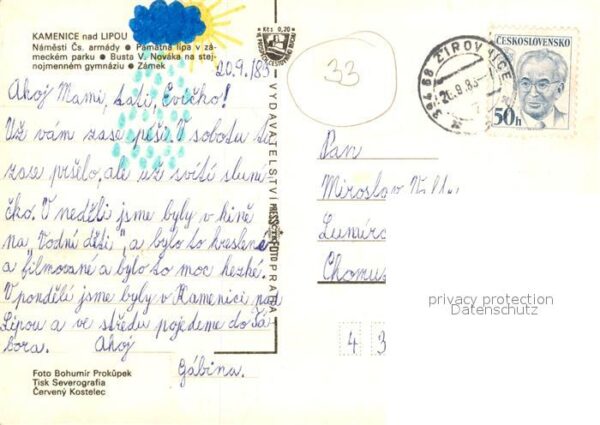 KAMENICE nad LIPOU
Náměstí Čs. armády • Památná lípa v zá-
meckém parku • Busta V. Nováka na stej-
nojmenném gymnáziu • Zámek
Kčs 0,20
20.9./83
33
394 68 ŽIROVNICE
20.9.83
ČESKOSLOVENSKO
50h
Ahoj Mami, tati, Evičko!
Už vám zase píši. V sobotu to
zase pršelo, ale už svítí sluní
čko. V neděli jsme byly v kině
na "Vodní děti", a bylo to kreslené
a filmované a bylo to moc hezké.
V pondělí jsme byly v Kamenici nad
Lipou a ve středu pojedeme do Tá
bora. Ahoj
Gábina.
VYDAVATELSTVÍ PRESSFOTO PRAHA
Pan
Miroslav
Lumíro
Chomu
privacy protection
Datenschutz
4 3
Foto Bohumír Prokůpek
Tisk Severografia
Červený Kostelec